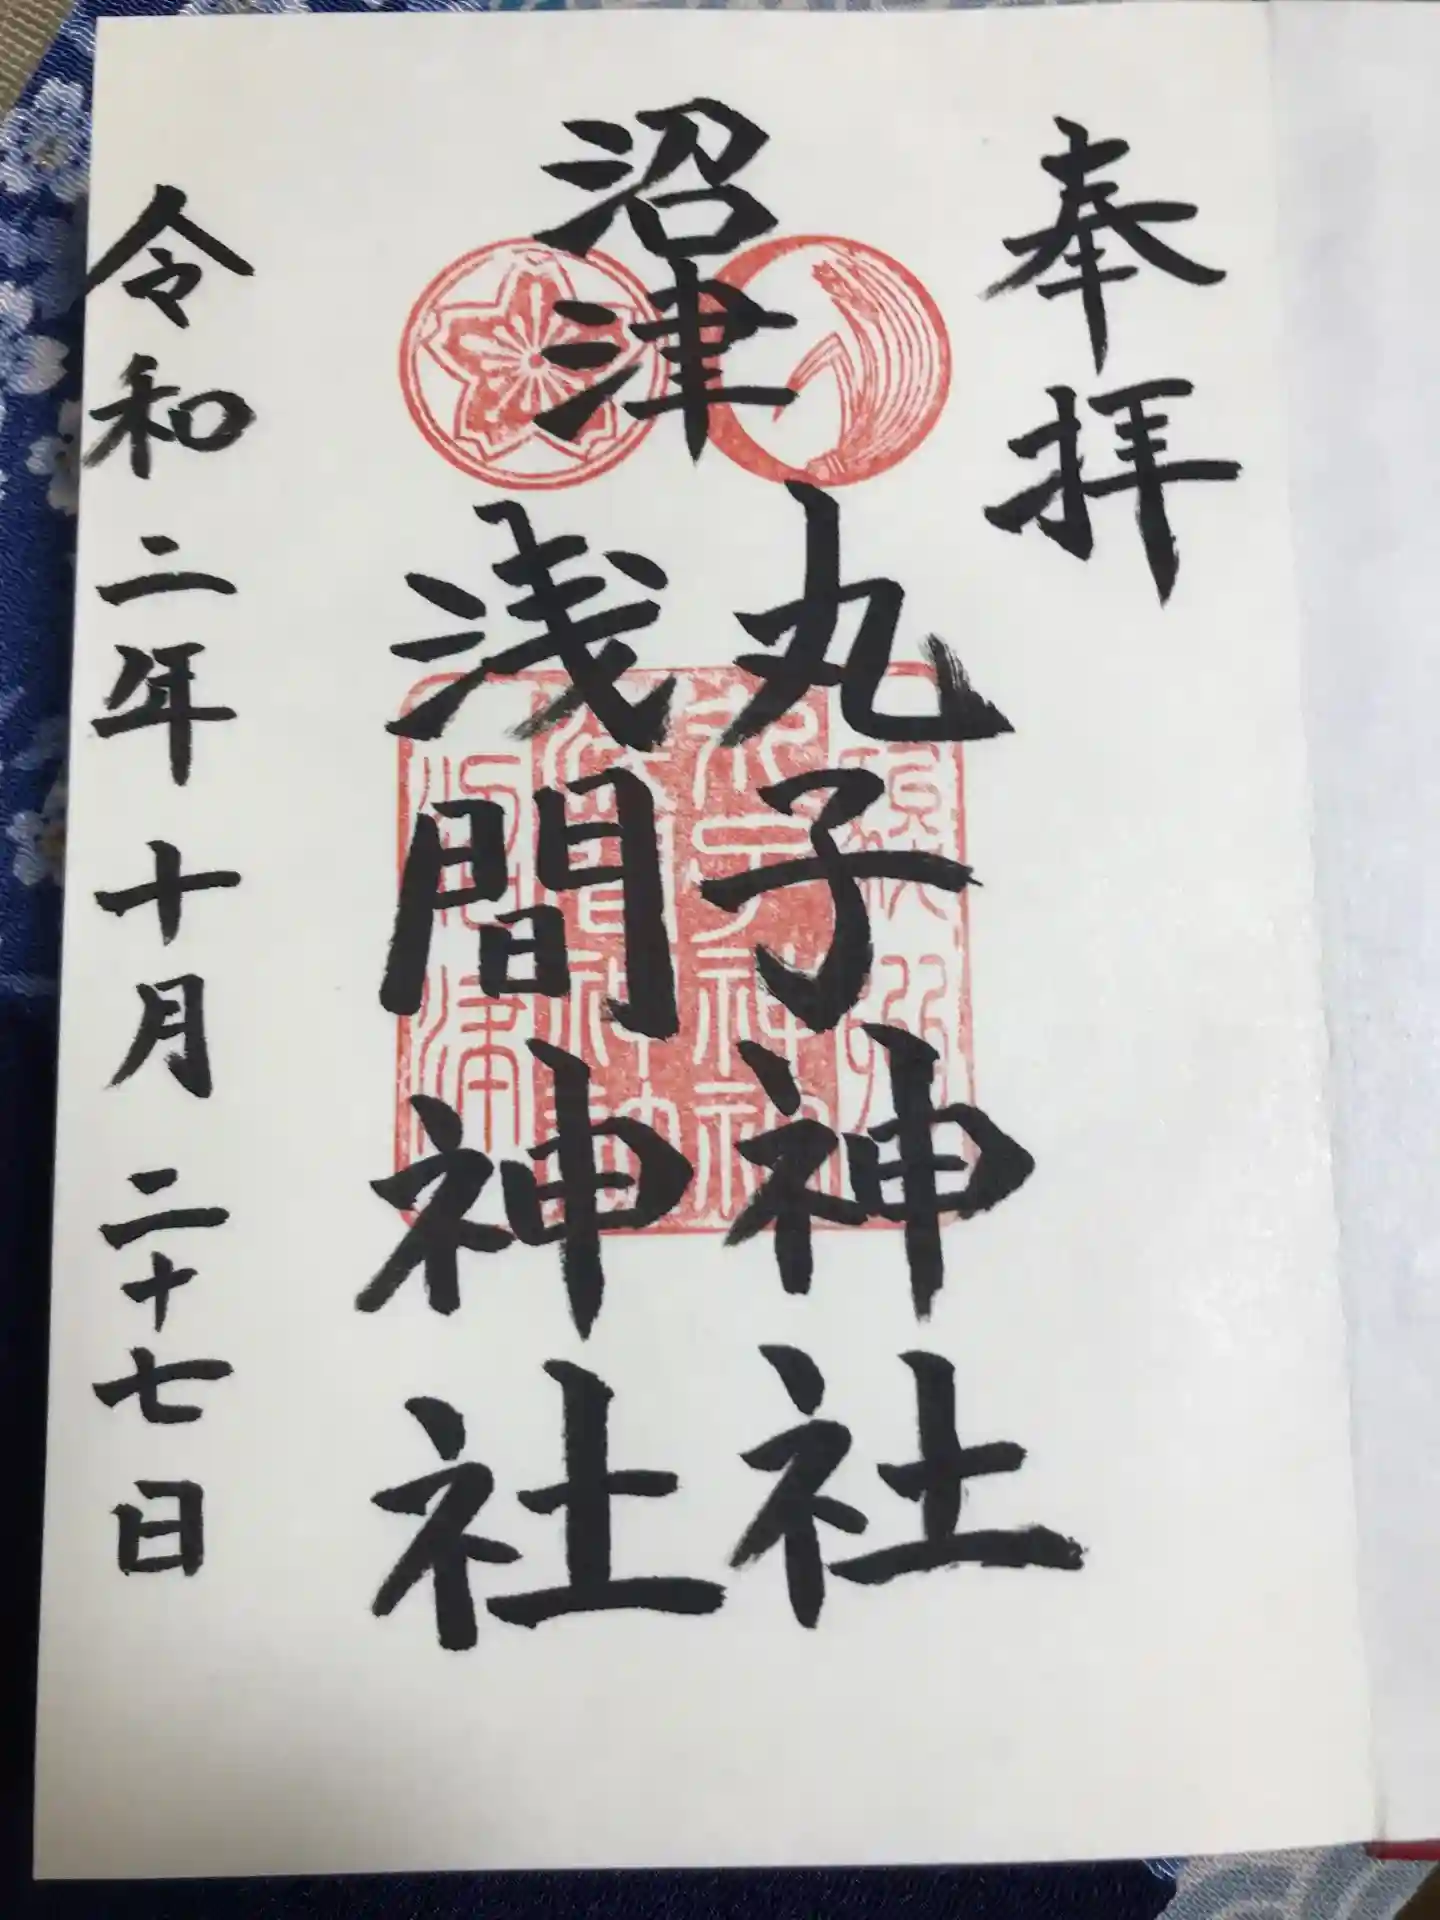 奉拝
沼津
丸子神社
浅間神社
令和二年十月二十七日